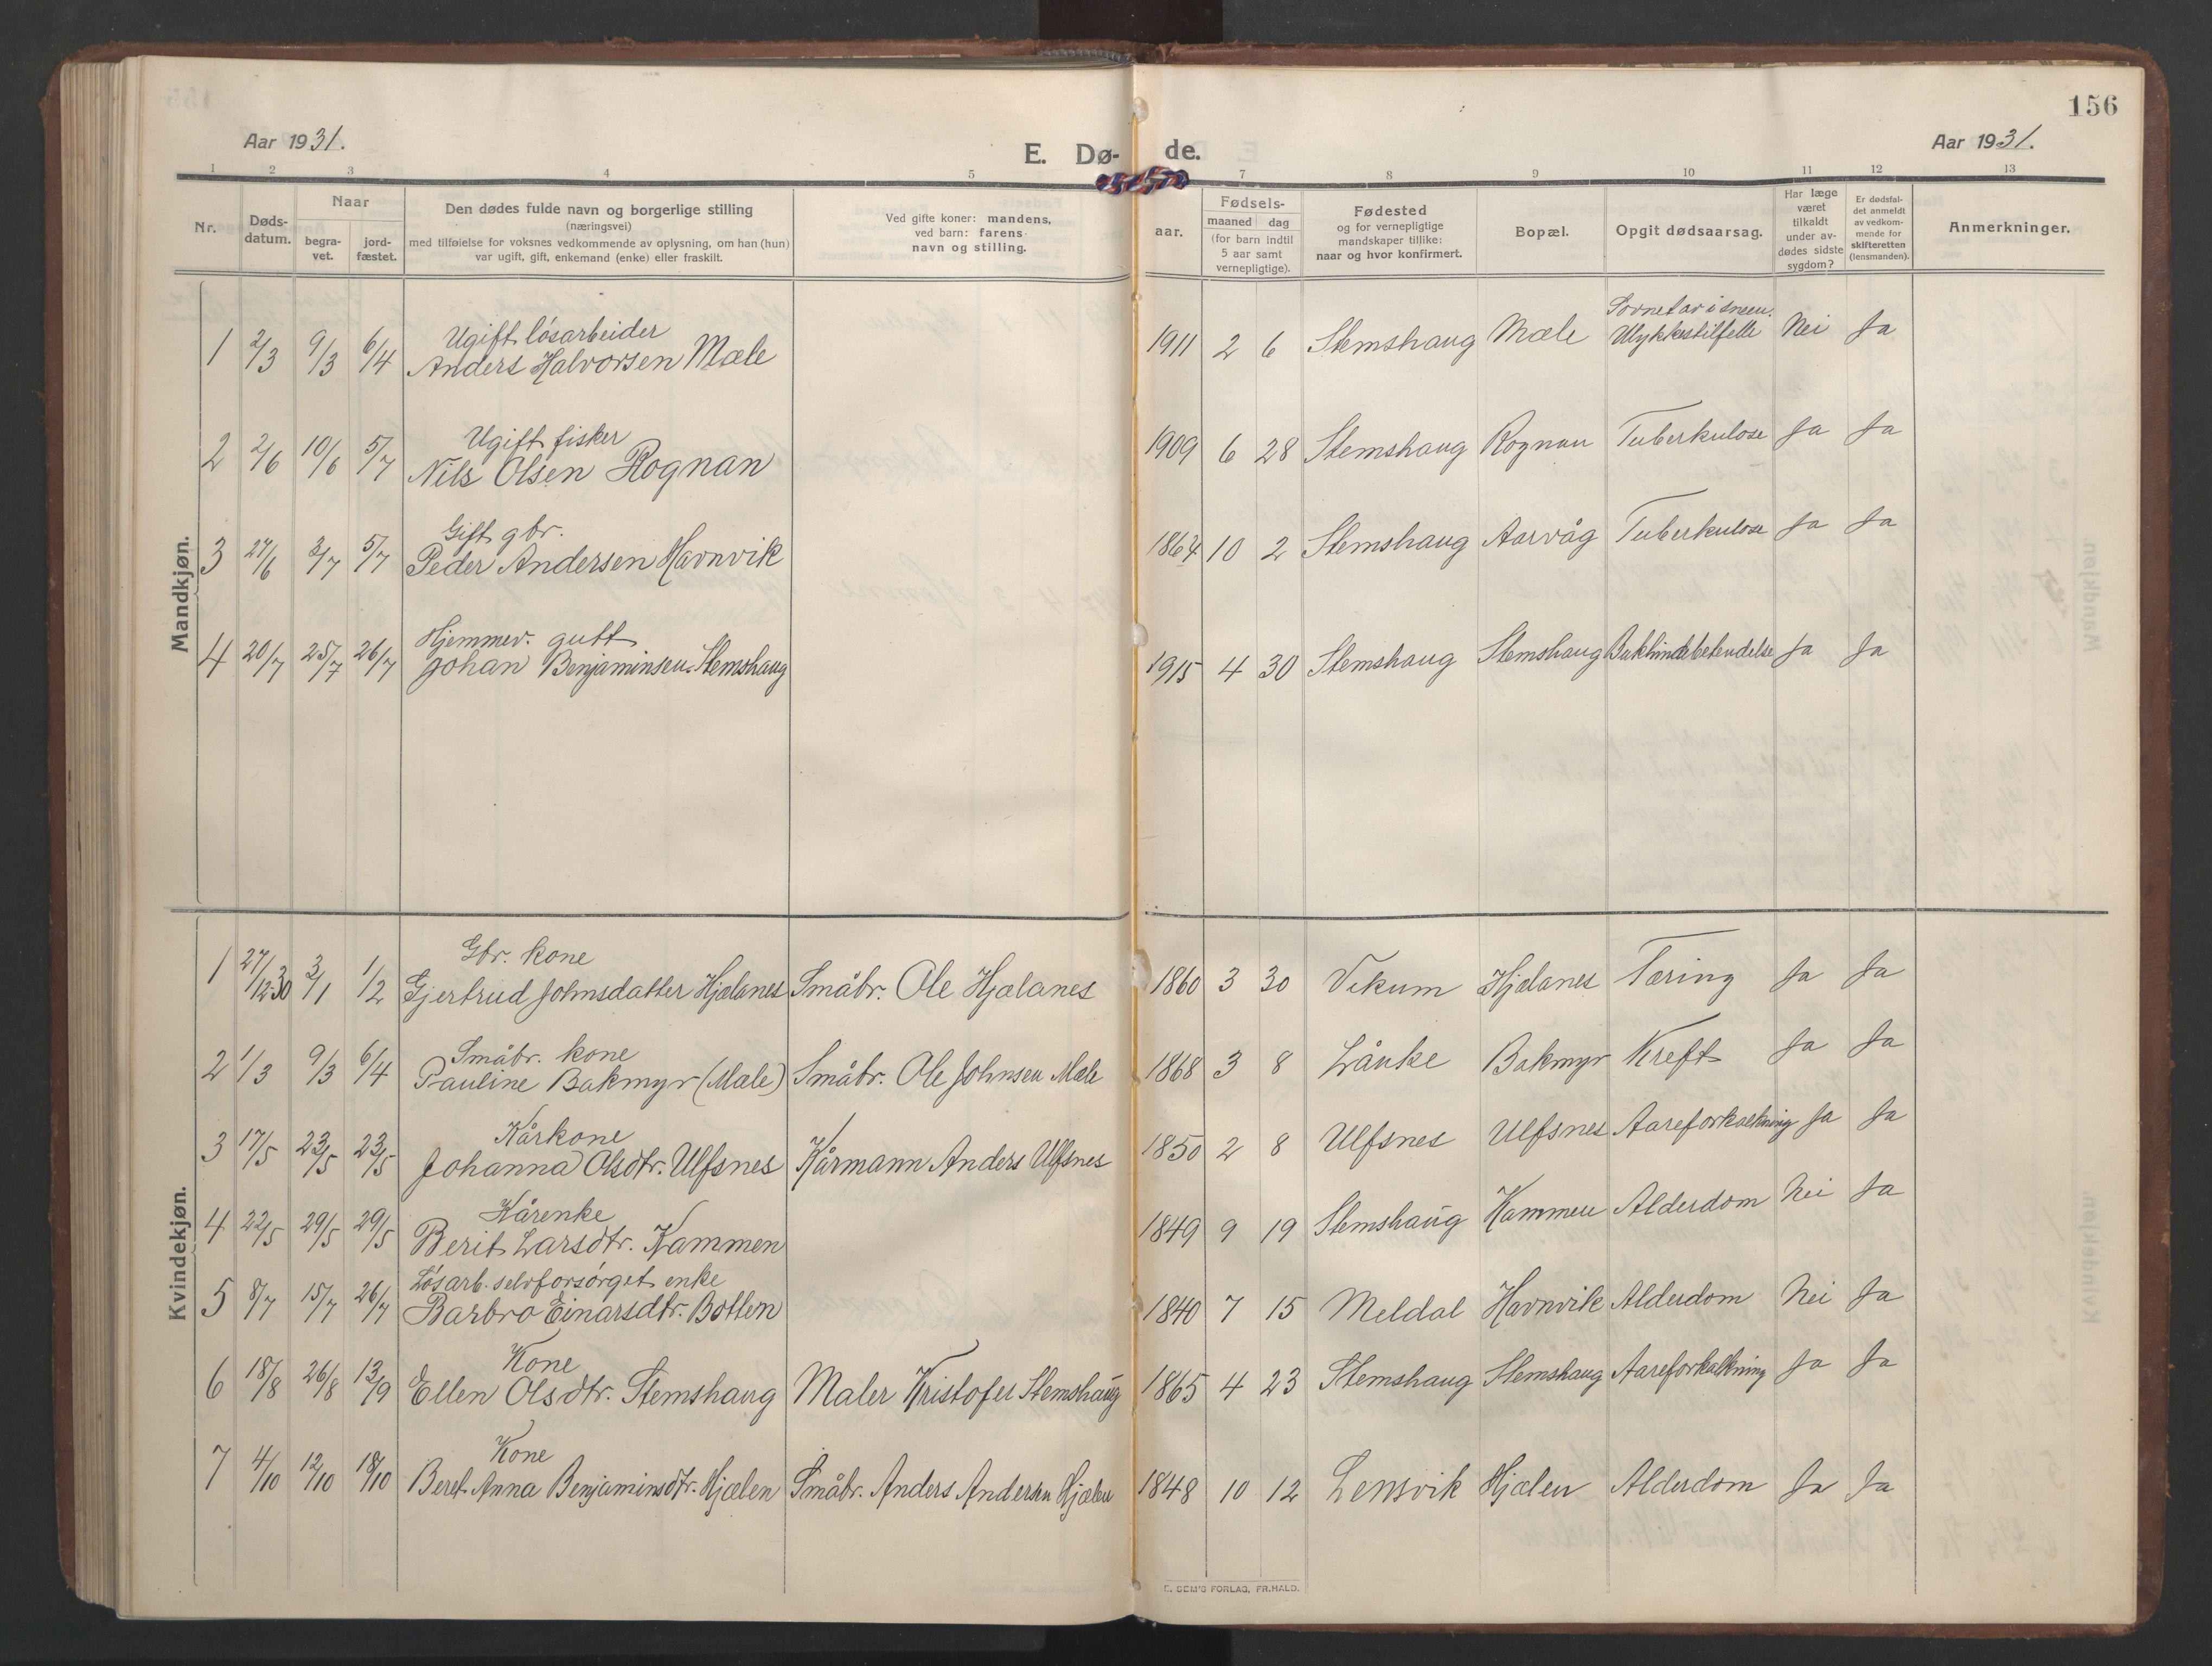 156
Aar 1931.
E. Dø- de.
Aar 1931.
1 2 3 4 5 7 8 9 10 11 12 13
Nr.
Døds-
datum.
Naar
begra-
vet.
jord-
fæstet.
Den dødes fulde navn og borgerlige stilling
(næringsvei)
med tilføielse for voksnes vedkommende av oplysning, om han (hun)
var ugift, gift, enkemand (enke) eller fraskilt.
Ved gifte koner: mandens,
ved barn: farens
navn og stilling.
aar.
Fødsels-
maaned dag
(for barn indtil
5 aar samt
vernepligtige).
Fødested
og for vernepligtige
mandskaper tillike:
naar og hvor konfirmert.
Bopæl.
Opgit dødsaarsag.
Har læge
været
tilkaldt
under av-
dødes sidste
sygdom?
Er dødsfal-
det anmeldt
av vedkom-
mende for
skifteretten
(lensmanden).
Anmerkninger.
Mandkjøn.
Ugift løsarbeider
1 2/3 9/3 6/4 Anders Halvorsen Mæle 1911 2 6 Stemshaug Mæle Ulykkestilfelle Nei Ja
Ugift fisker
2 2/6 10/6 5/7 Nils Olsen Rognan 1909 6 28 Stemshaug Rognan Tuberkulose Ja Ja
Gift gbr.
3 27/6 3/7 5/7 Peder Andersen Havnvik 1864 10 2 Stemshaug Aarvåg Tuberkulose Ja Ja
Hjemmev. gutt
4 20/7 25/7 26/7 Johan Benjaminsen Stemshaug 1915 4 30 Stemshaug Stemshaug Ja Ja
Kvindekjøn.
Gbr. kone
1 27/12-30 3/1 1/2 Gjertrud Johnsdatter Hjælanes Småbr. Ole Hjælanes 1860 3 30 Vikum Hjælanes Tæring Ja Ja
Småbr. kone
2 1/3 9/3 6/4 Pauline Bakmyr (Mæle) Småbr. Ole Johnsen Mæle 1868 3 8 Lånke Bakmyr Kreft Ja Ja
Kårkone
3 17/5 23/5 23/5 Johanna Olsdtr. Ulfsnes Kårmann Anders Ulfsnes 1850 2 8 Ulfsnes Ulfsnes Aareforkalkning Ja Ja
Kårenke
4 22/5 29/5 29/5 Berit Larsdtr. Kammen 1849 9 19 Stemshaug Kammen Alderdom Nei Ja
Løsarb. selvforsørget enke
5 8/7 15/7 26/7 Barbro Einarsdtr. Botten 1840 7 15 Meldal Havnvik Alderdom Nei Ja
Kone
6 18/8 26/8 13/9 Ellen Olsdtr. Stemshaug Maler Kristofer Stemshaug 1865 4 23 Stemshaug Stemshaug Aareforkalkning Ja Ja
Kone
7 4/10 12/10 18/10 Beret Anna Benjaminsdtr. Hjælen Småbr. Anders Andersen Hjælen 1848 10 12 Lensvik Hjælen Alderdom Ja Ja
E. SEM'S FORLAG, FR.HALD.